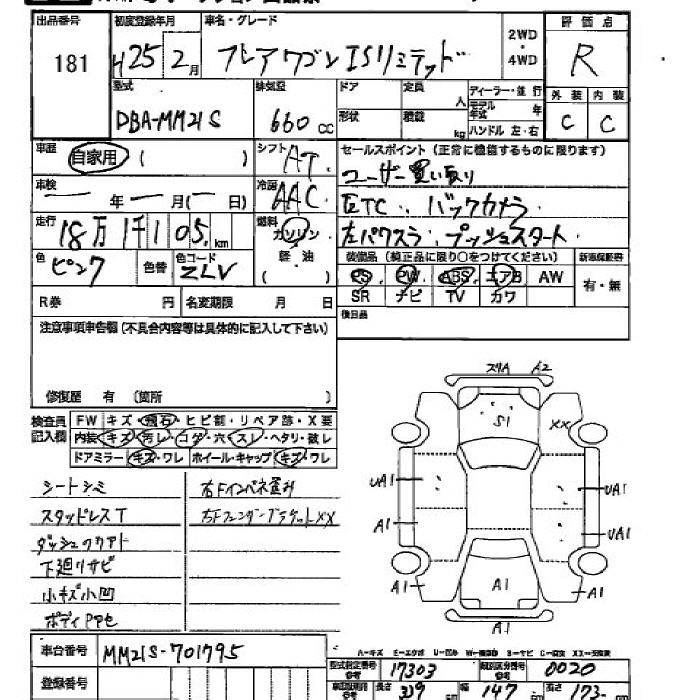 出品番号 初度登録年月 車名・グレード 2WD・4WD 評価点
181 H25 2月 フレアワゴン ISリミテッド R
型式 排気量 ドア 定員 人 ディーラー・並行 外装 内装
モデル年式 年
DBA-MM21S 660 cc 形状 積載 kg ハンドル 左・右 C C
車歴 自家用 ( ) シフト AT セールスポイント(正常に機能するものに限ります)
ユーザー買い取り
車検 ー年ー月(ー日) 冷房 AAC ETC. バックカメラ.
走行 18万1千105km 燃料 ガソリン 左パワスラ. プッシュスタート.
軽・油
色 ピンク 色替 色コード ZLV ( ) 装備品(純正品に限り○をつけてください) 新車保証書
PS PW ABS エアB AW 有・無
R券 円 名変期限 月 日 SR ナビ TV カワ
注意事項申告欄(不具合内容等は具体的に記入して下さい) 後日品
修復歴 有 (箇所 )
検査員記入欄 FW キズ・飛石・ヒビ割・リペア跡・X要
内装 キズ・汚レ・コゲ・穴・スレ・ヘタリ・破レ
ドアミラー キズ・ワレ ホイール・キャップ キズ・ワレ
スリA A2
S1 XX
UA1 UA1
A1 UA1
A1 A1 A1
A1
シートシミ 右Fインパネ歪み
スタッドレスT 右Fフェンダーブラケットxx
ダッシュクカアト
下廻りサビ
小キズ小凹
ボディPPセ
車台番号 MM21S-701795
A-キズ E-エクボ U-凹み W-補修跡 S-サビ C-腐食 XX-交換済
型式指定番号 参考 17303 類別区分番号 参考 0020
登録番号 長さ 339 幅 147 高さ 173- cm